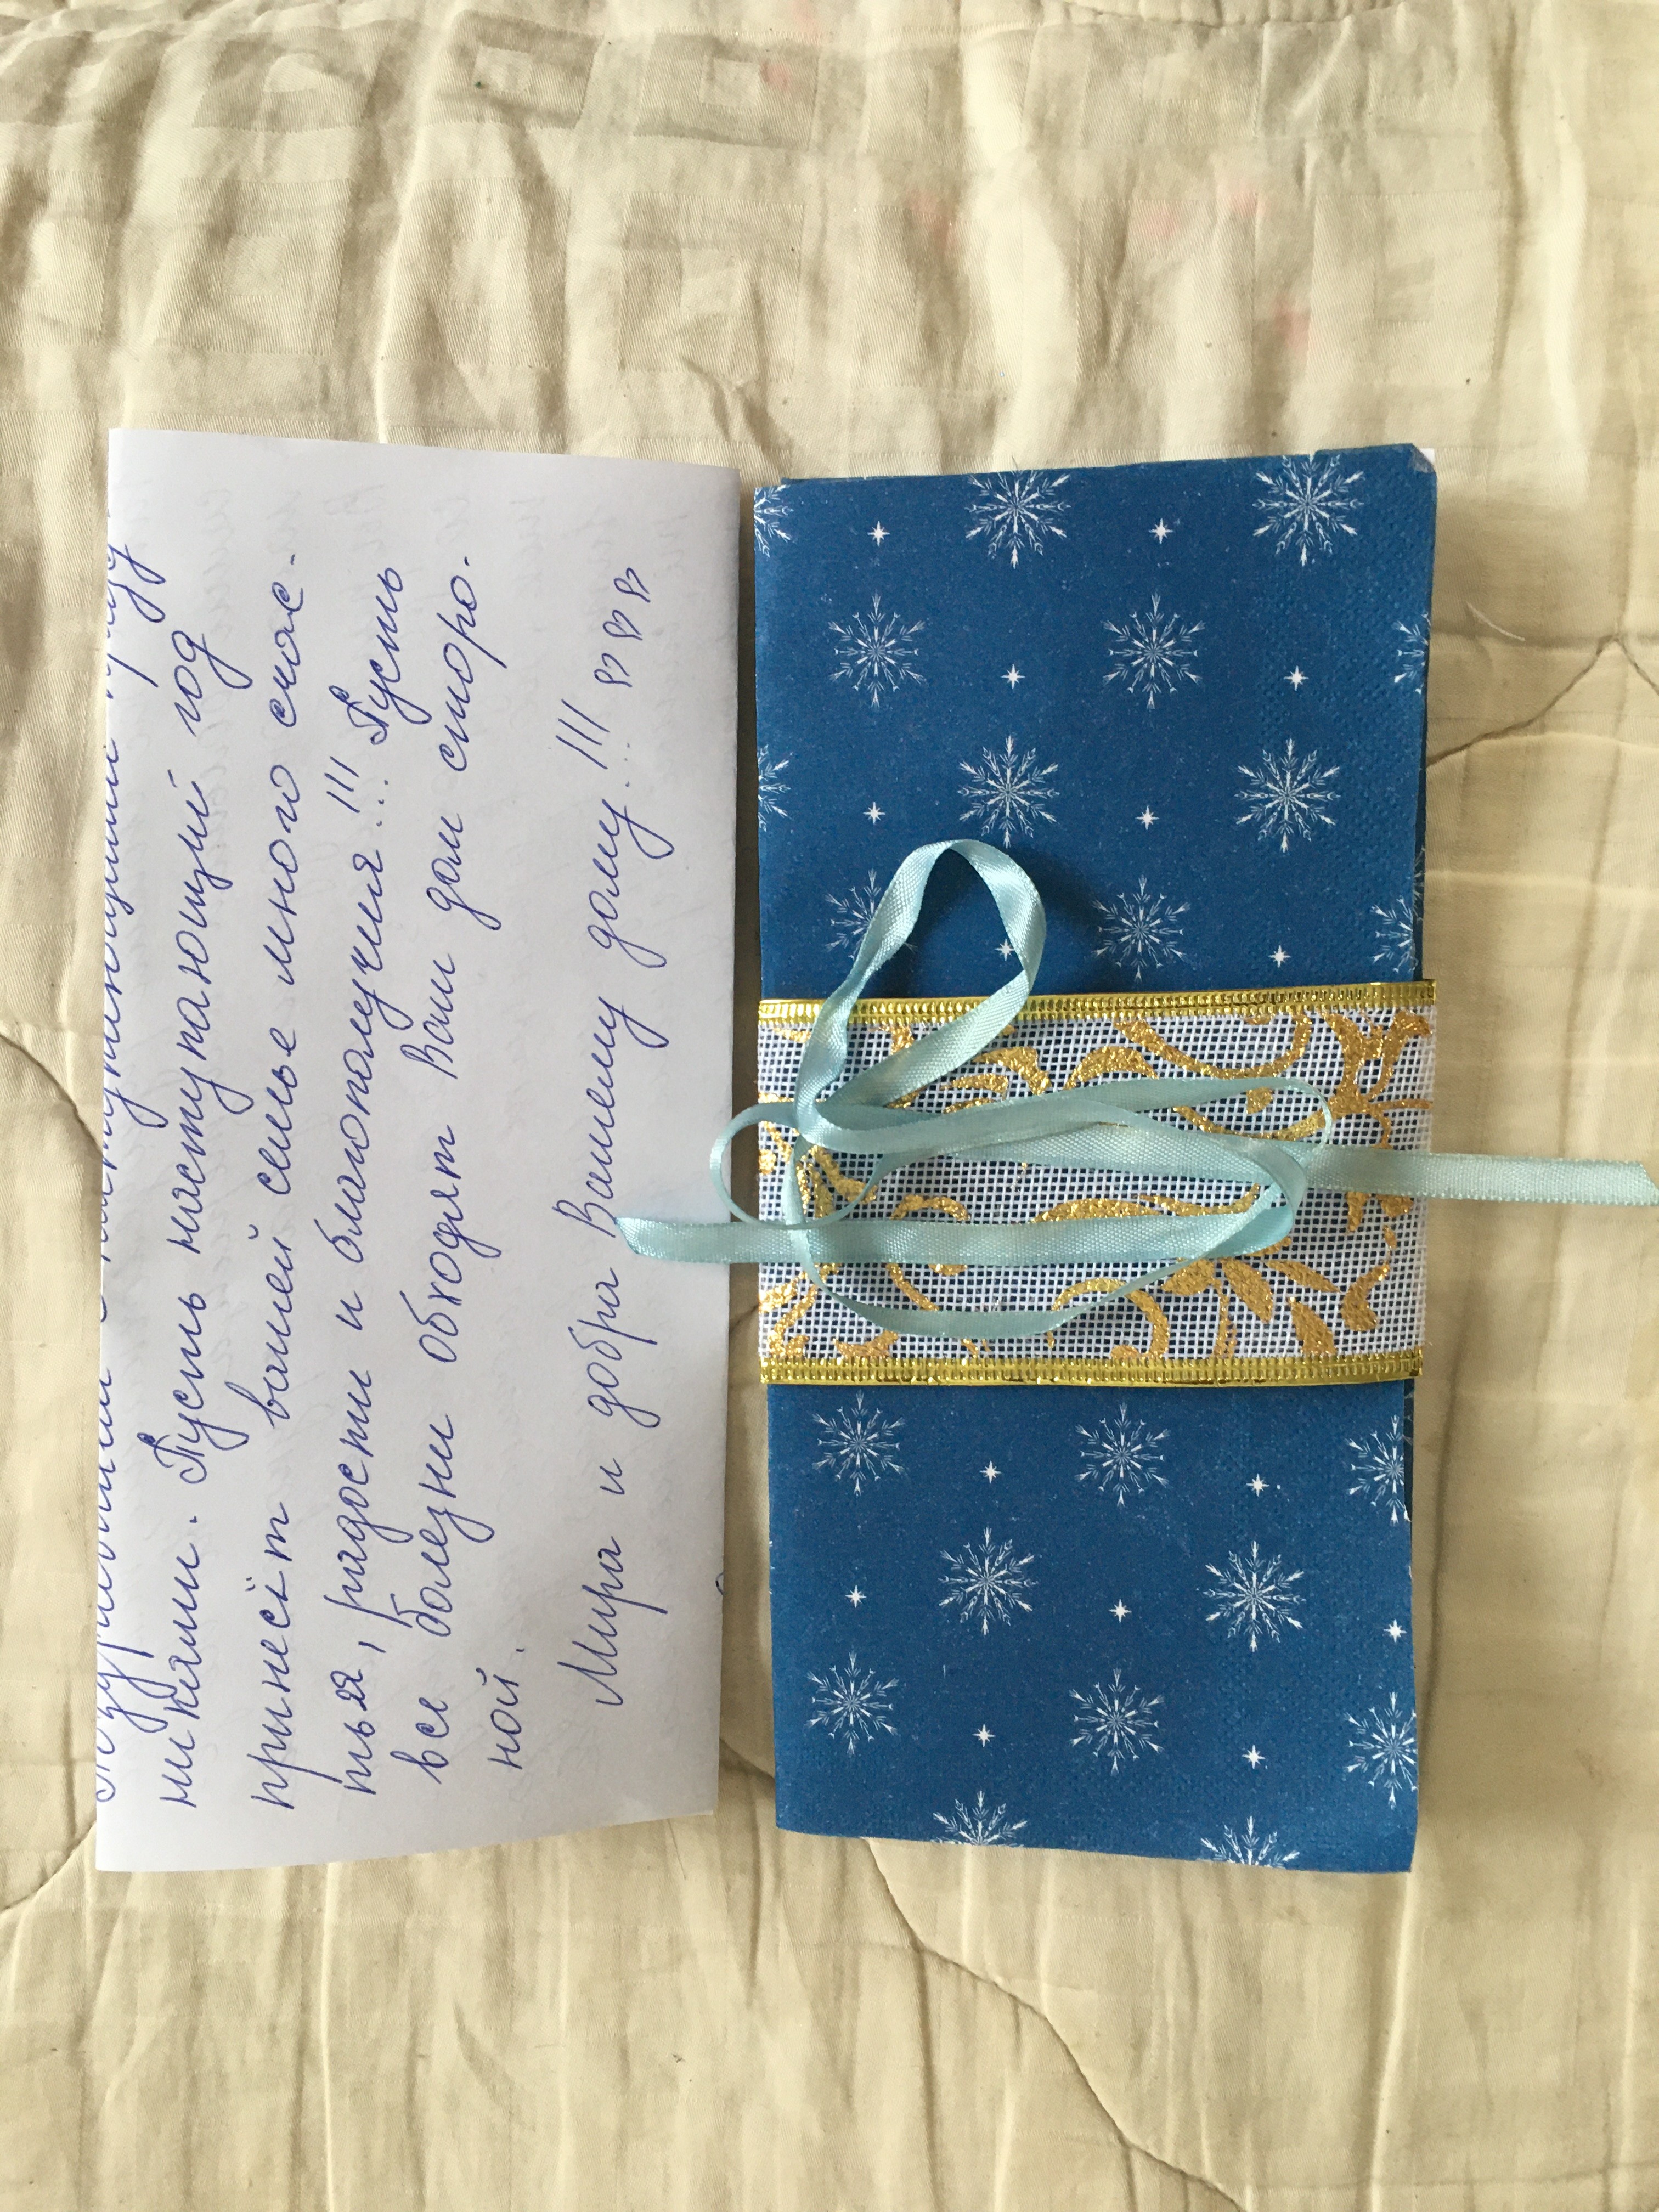 никами. Пусть наступающий год
принесёт вашей семье много счас-
тья, радости и благополучия!!! Пусть
все болезни обходят Ваш дом сторо-
ной.
Мира и добра Вашему дому!!!